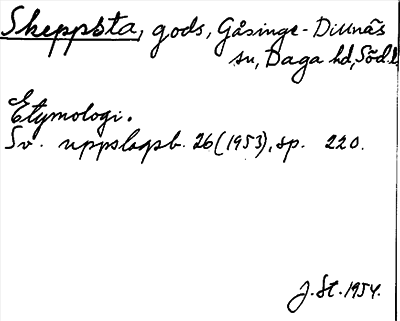 Skeppsta, gods, Gåsinge-Dillnäs
sn, Daga hd, Södl.
Etymologi.
Sv. uppslagsb. 26 (1953), sp. 220.
J. St. 1954.